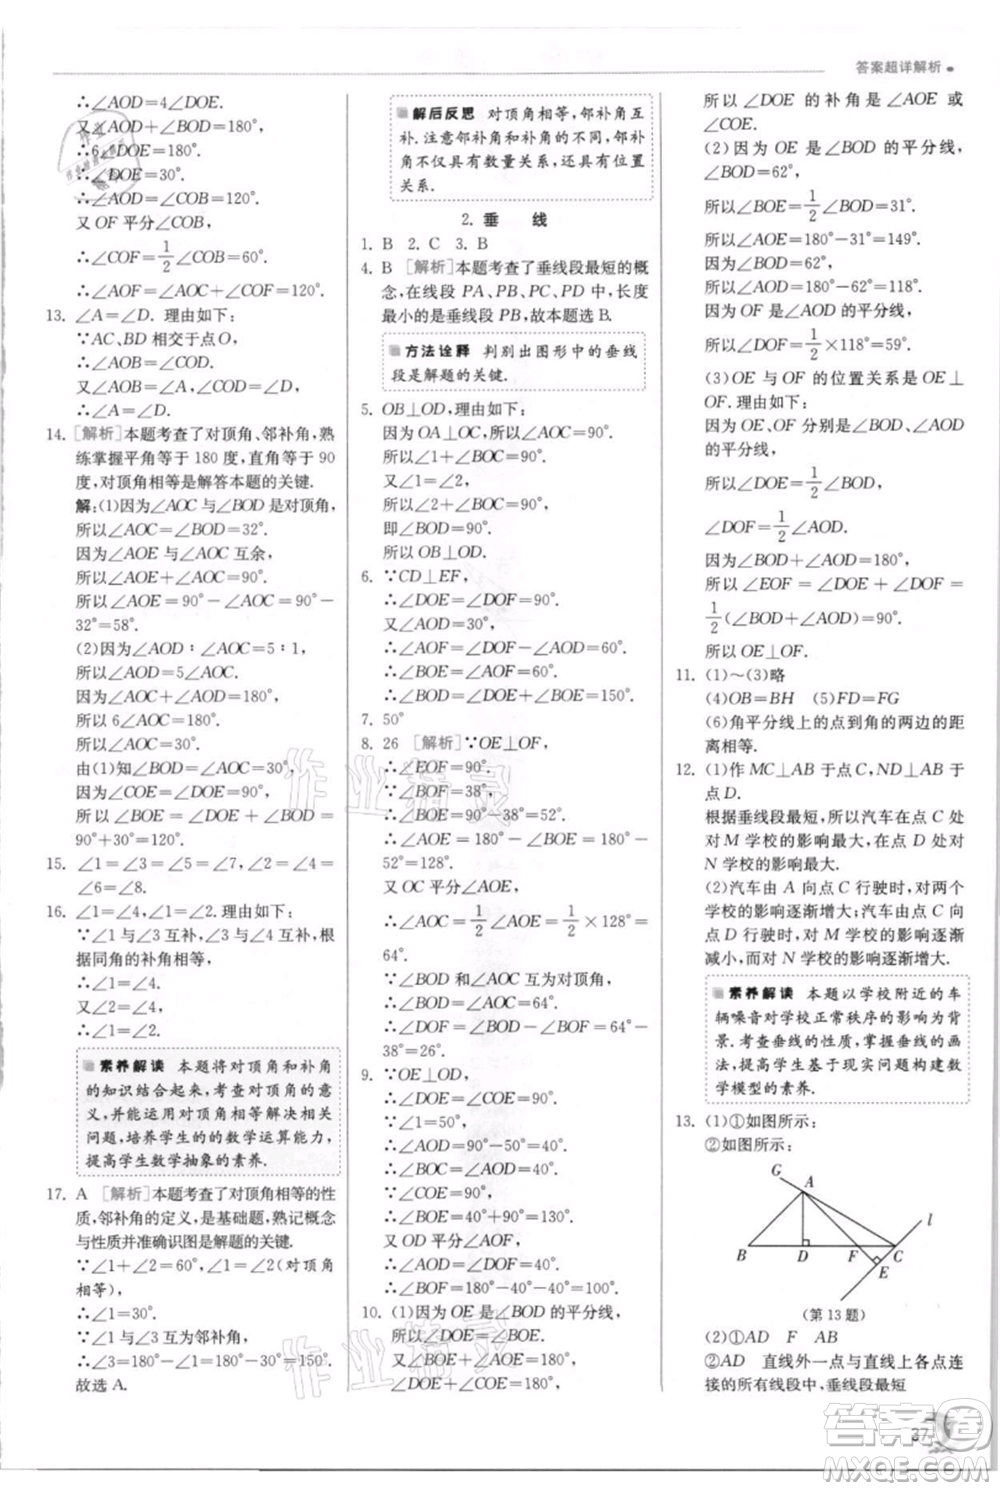 答案超详解析
∴∠AOD=4∠DOE.
又∠AOD+∠BOD=180°,
∴6∠DOE=180°.
∴∠DOE=30°.
∴∠AOD=∠COB=120°.
又 OF 平分∠COB,
∴∠COF=1/2∠COB=60°.
∴∠AOF=∠AOC+∠COF=120°.
13. ∠A=∠D. 理由如下:
∵AC,BD 相交于点O,
∴∠AOB=∠COD.
又∠AOB=∠A,∠COD=∠D,
∴∠A=∠D.
14. [解析]本题考查了对顶角、邻补角,熟
练掌握平角等于 180 度,直角等于 90
度,对顶角相等是解答本题的关键.
解:(1)因为∠AOC 与∠BOD 是对顶角,
所以∠AOC=∠BOD=32°.
因为∠AOE 与∠AOC 互余,
所以∠AOE+∠AOC=90°.
所以∠AOE=90°-∠AOC=90°-
32°=58°.
(2)因为∠AOD∶∠AOC=5∶1,
所以∠AOD=5∠AOC.
因为∠AOC+∠AOD=180°,
所以 6∠AOC=180°.
所以∠AOC=30°.
由(1)知∠BOD=∠AOC=30°,
∠COE=∠DOE=90°.
所以∠BOE=∠DOE+∠BOD=
90°+30°=120°.
15. ∠1=∠3=∠5=∠7,∠2=∠4=
∠6=∠8.
16. ∠1=∠4,∠1=∠2.理由如下:
∵∠1与∠3互补,∠3与∠4互补,
根据同角的补角相等,
∴∠1=∠4.
又∠2=∠4,
∴∠1=∠2.
素养解读 本题将对顶角和补角
的知识结合起来,考查对顶角的意
义,并能运用对顶角相等解决相关
问题,培养学生的的数学运算能力,
提高学生数学抽象的素养.
17. A [解析]本题考查了对顶角相等的性
质,邻补角的定义,是基础题,熟记概念
与性质并准确识图是解题的关键.
∵∠1+∠2=60°,∠1=∠2(对顶角
相等),
∴∠1=30°.
∵∠1与∠3互为邻补角,
∴∠3=180°-∠1=180°-30°=150°.
故选 A.
解后反思 对顶角相等,邻补角互
补.注意邻补角和补角的不同,邻补
角不仅具有数量关系,还具有位置
关系.
2. 垂 线
1. B 2. C 3. B
4. B [解析]本题考查了垂线段最短的概
念,在线段 PA、PB、PC、PD 中,长度
最小的是垂线段 PB,故本题选 B.
方法诠释 判别出图形中的垂线
段是解题的关键.
5. OB⊥OD,理由如下:
因为 OA⊥OC,所以∠AOC=90°.
所以∠1+∠BOC=90°.
又∠1=∠2,
所以∠2+∠BOC=90°,
即∠BOD=90°.
所以 OB⊥OD.
6. ∵CD⊥EF,
∴∠DOE=∠DOF=90°.
又∠AOD=30°,
∴∠AOF=∠DOF-∠AOD=60°.
∴∠BOE=∠AOF=60°.
∴∠BOD=∠DOE+∠BOE=150°.
7. 50°
8. 26 [解析]∵OE⊥OF,
∴∠EOF=90°.
∵∠BOF=38°,
∴∠BOE=90°-38°=52°.
∴∠AOE=180°-∠BOE=180°-
52°=128°.
又 OC 平分∠AOE,
∴∠AOC=1/2∠AOE=1/2×128°=
64°.
∵∠BOD 和∠AOC 互为对顶角,
∴∠BOD=∠AOC=64°.
∴∠DOF=∠BOD-∠BOF=64°-
38°=26°.
9. ∵OE⊥OD,
∴∠DOE=90°.
又∠1=50°,
∴∠AOD=90°-50°=40°.
∴∠BOC=∠AOD=40°.
∵∠COE=90°,
∴∠BOE=40°+90°=130°.
又 OD 平分∠AOF,
∴∠DOF=∠AOD=40°.
∴∠BOF=180°-40°-40°=100°.
10. (1)因为 OE 是∠BOD 的平分线,
所以∠DOE=∠BOE.
又∠BOE+∠AOE=180°,
∠DOE+∠COE=180°,
所以∠DOE 的补角是∠AOE 或
∠COE.
(2)因为 OE 是∠BOD 的平分线,
∠BOD=62°,
所以∠BOE=1/2∠BOD=31°.
所以∠AOE=180°-31°=149°.
因为∠BOD=62°,
所以∠AOD=180°-62°=118°.
因为 OF 是∠AOD 的平分线,
所以∠DOF=1/2×118°=59°.
(3)OE 与 OF 的位置关系是 OE⊥
OF.理由如下:
因为 OE、OF 分别是∠BOD、∠AOD
的平分线,
所以∠DOE=1/2∠BOD,
∠DOF=1/2∠AOD.
因为∠BOD+∠AOD=180°,
所以∠EOF=∠DOE+∠DOF=
1/2(∠BOD+∠AOD)=90°.
所以 OE⊥OF.
11. (1)～(3)略
(4)OB=BH (5)FD=FG
(6)角平分线上的点到角的两边的距
离相等.
12. (1)作 MC⊥AB 于点 C,ND⊥AB 于
点 D.
根据垂线段最短,所以汽车在点 C 处
对 M 学校的影响最大,在点 D 处对
N 学校的影响最大.
(2)汽车由 A 向点 C 行驶时,对两个
学校的影响逐渐增大;汽车由点 C 向
点 D 行驶时,对 M 学校的影响逐渐
减小,而对 N 学校的影响逐渐增大.
素养解读 本题以学校附近的车
辆噪音对学校正常秩序的影响为背
景.考查垂线的性质,掌握垂线的画
法,提高学生解决实际问题构建数
学模型的素养.
13. (1)①如图所示:
②如图所示:
A
l
B
D
F
C
E
(第 13 题)
(2)①AD F AB
②AD 直线外一点与直线上各点连
接的所有线段中,垂线段最短
37
作业精灵
作业精灵
答案圈
MXQE.COM